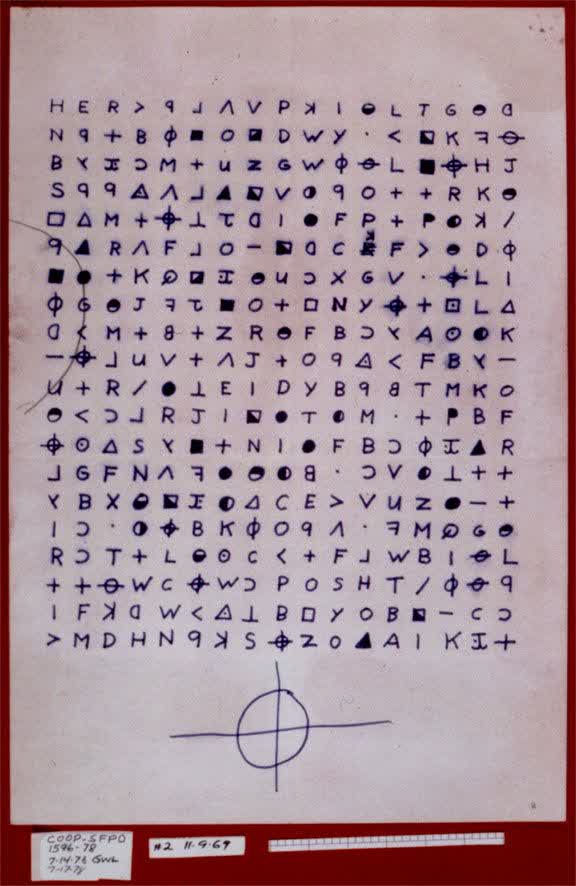 H E R > ꟼ ⅃ Λ V P ꓘ I ◒ L T G ◒ ᗡ
N ꟼ + B ϕ ■ O ◪ D W Y · < ◩ K ꟻ ⊖
B ⅄ I Ɔ M + U Z G W ϕ ⊖ L ■ ⌖ H J
S ꟼ ꟼ △ Λ ⅃ ▲ ◪ V ◑ ꟼ O + + R K ◒
□ △ M + ⌖ ⊥ τ ᗡ I ● F P + P ◑ ꓘ /
ꟼ ▲ R Λ F ⅃ O - ◪ ᗡ C F > ◒ D ϕ
■ ● + K Q ◪ I ◒ U Ɔ X G V · ⌖ L I
ϕ G ◒ J ꟻ τ ■ O + □ N Y ⌖ + ⊡ L △
ᗡ < M + B + Z R ◒ F B Ɔ ⅄ A ⊙ ◑ K
- ⌖ ⅃ U V + Λ J + O ꟼ △ < F B Y -
U + R / ● ⊥ E I D Y B ꟼ B T M K O
◒ < Ɔ ⅃ R J I ◪ ● T ◑ M · + P B F
⌖ ⊙ △ S ⅄ ■ + N I ● F B Ɔ ϕ I ▲ R
⅃ G F N Λ ꟻ ● ◒ ◑ B · Ɔ V ◑ ⊥ + +
⅄ B X ◒ ◪ I ◑ △ C E > V U Z ● - +
I Ɔ · ◑ ⌖ B K ϕ O ꟼ Λ · ꟻ M Q G ◒
R Ɔ T + L ◒ ⊙ C < + F ⅃ W B I ⊖ L
+ + ⊖ W C ⌖ W Ɔ P O S H T / ϕ ⊖ ꟼ
I F ꓘ ᗡ W < △ ⊥ B □ Y O B ◪ - C Ɔ
> M D H N ꟼ ꓘ S ⌖ Z O ▲ A I K I +
COOP-SFPD
1596-78
7-14-78 GWL
7-17-78
#2 11-9-69